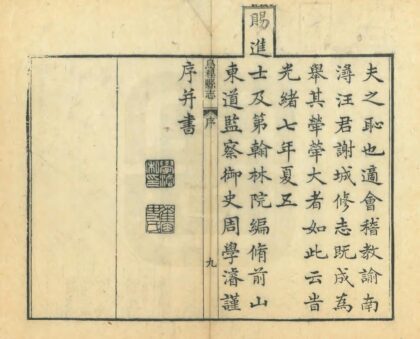 夫之恥也適會稽教諭南
潯汪君謝城修志既成為
舉其犖犖大者如此云旹
光緒七年夏五
賜進
士及第翰林院編脩前山
東道監察御史周學濬謹
烏程縣志
序
九
序并書